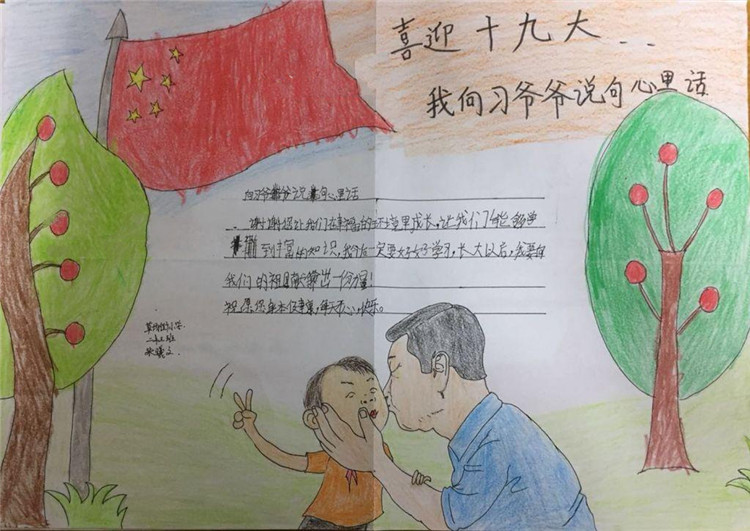 喜迎十九大...
我向习爷爷说句心里话
向习爷爷说句心里话
谢谢您让我们在幸福的环境里成长,让我们能够学
到丰富的知识,我们一定要好好学习,长大以后,我要为
我们的祖国献出一份力量!
祝愿您身体健康,每天开心快乐。